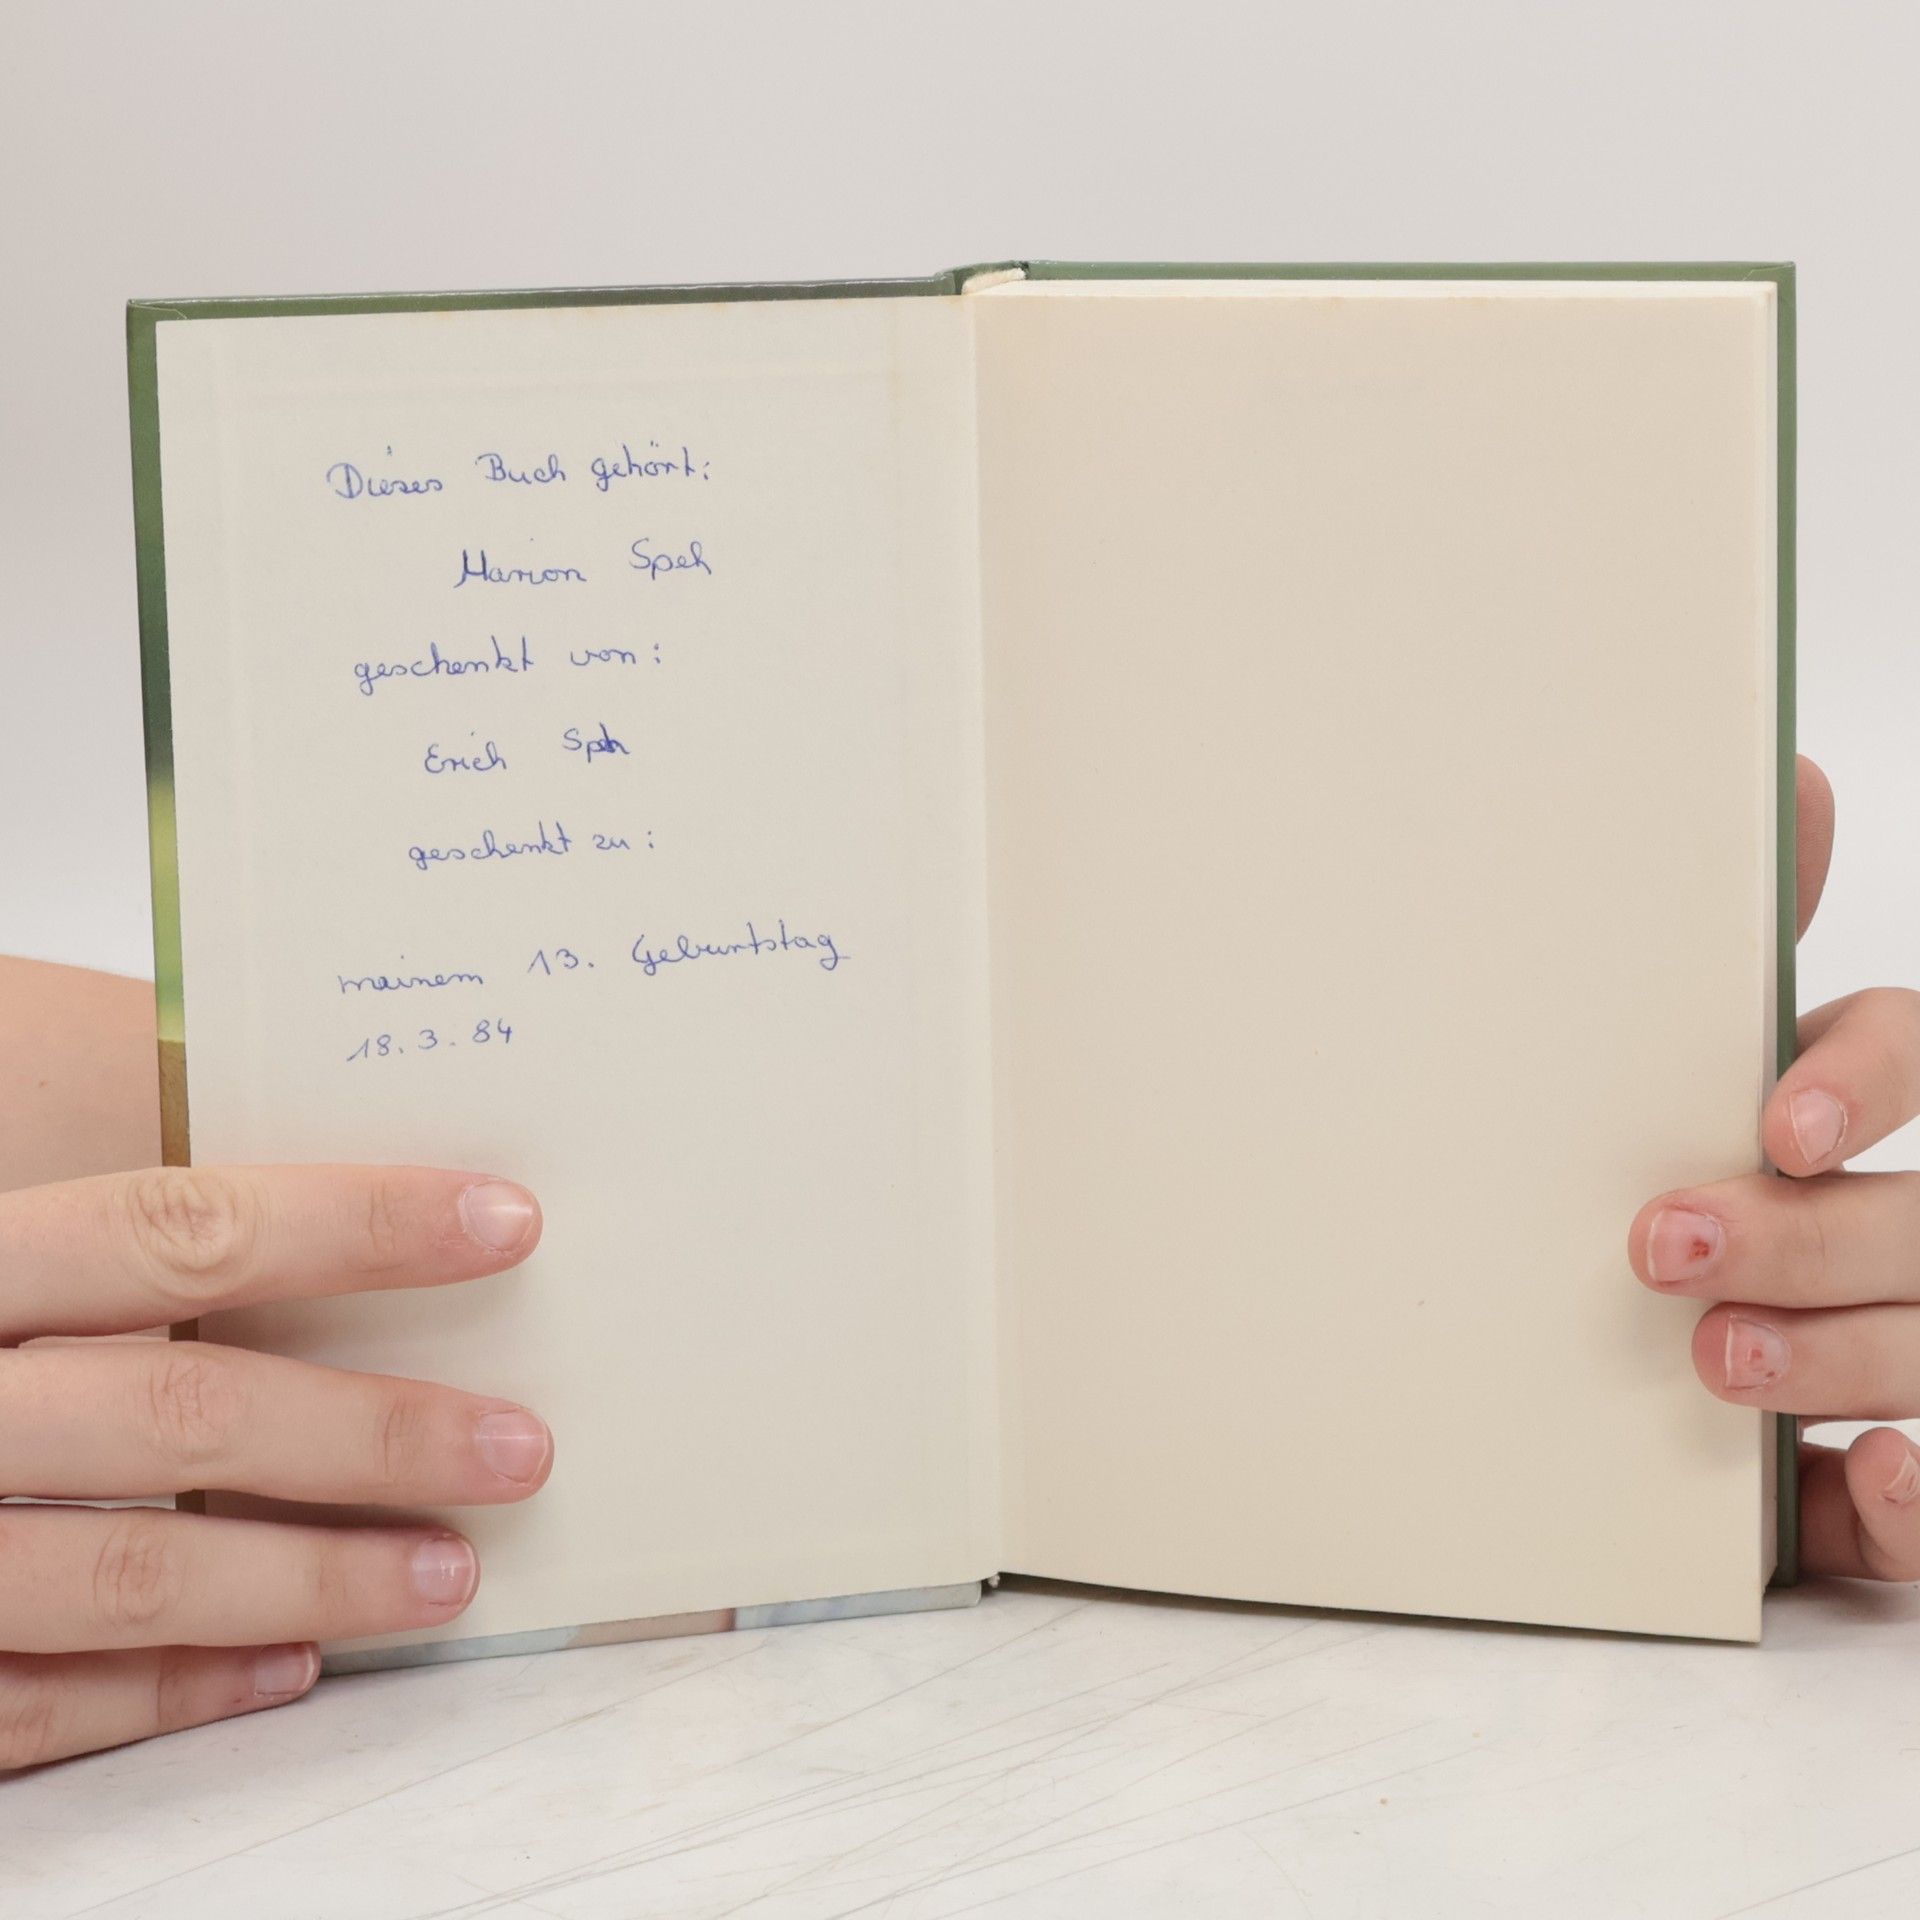 Dieses Buch gehört:
Marion Speh
geschenkt von:
Erich Speh
geschenkt zu:
meinem 13. Geburtstag
18.3.84